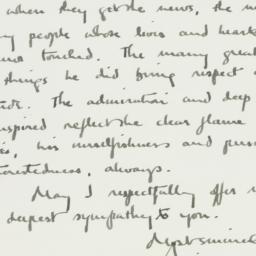 when they get the news, the
people whose lives and hearts
touched. The many great
things he did bring respect
. The admiration and deep
inspired reflects the clear flame
his unselfishness and
, always.
May I respectfully offer
deepest sympathy to you.
Most sincerely